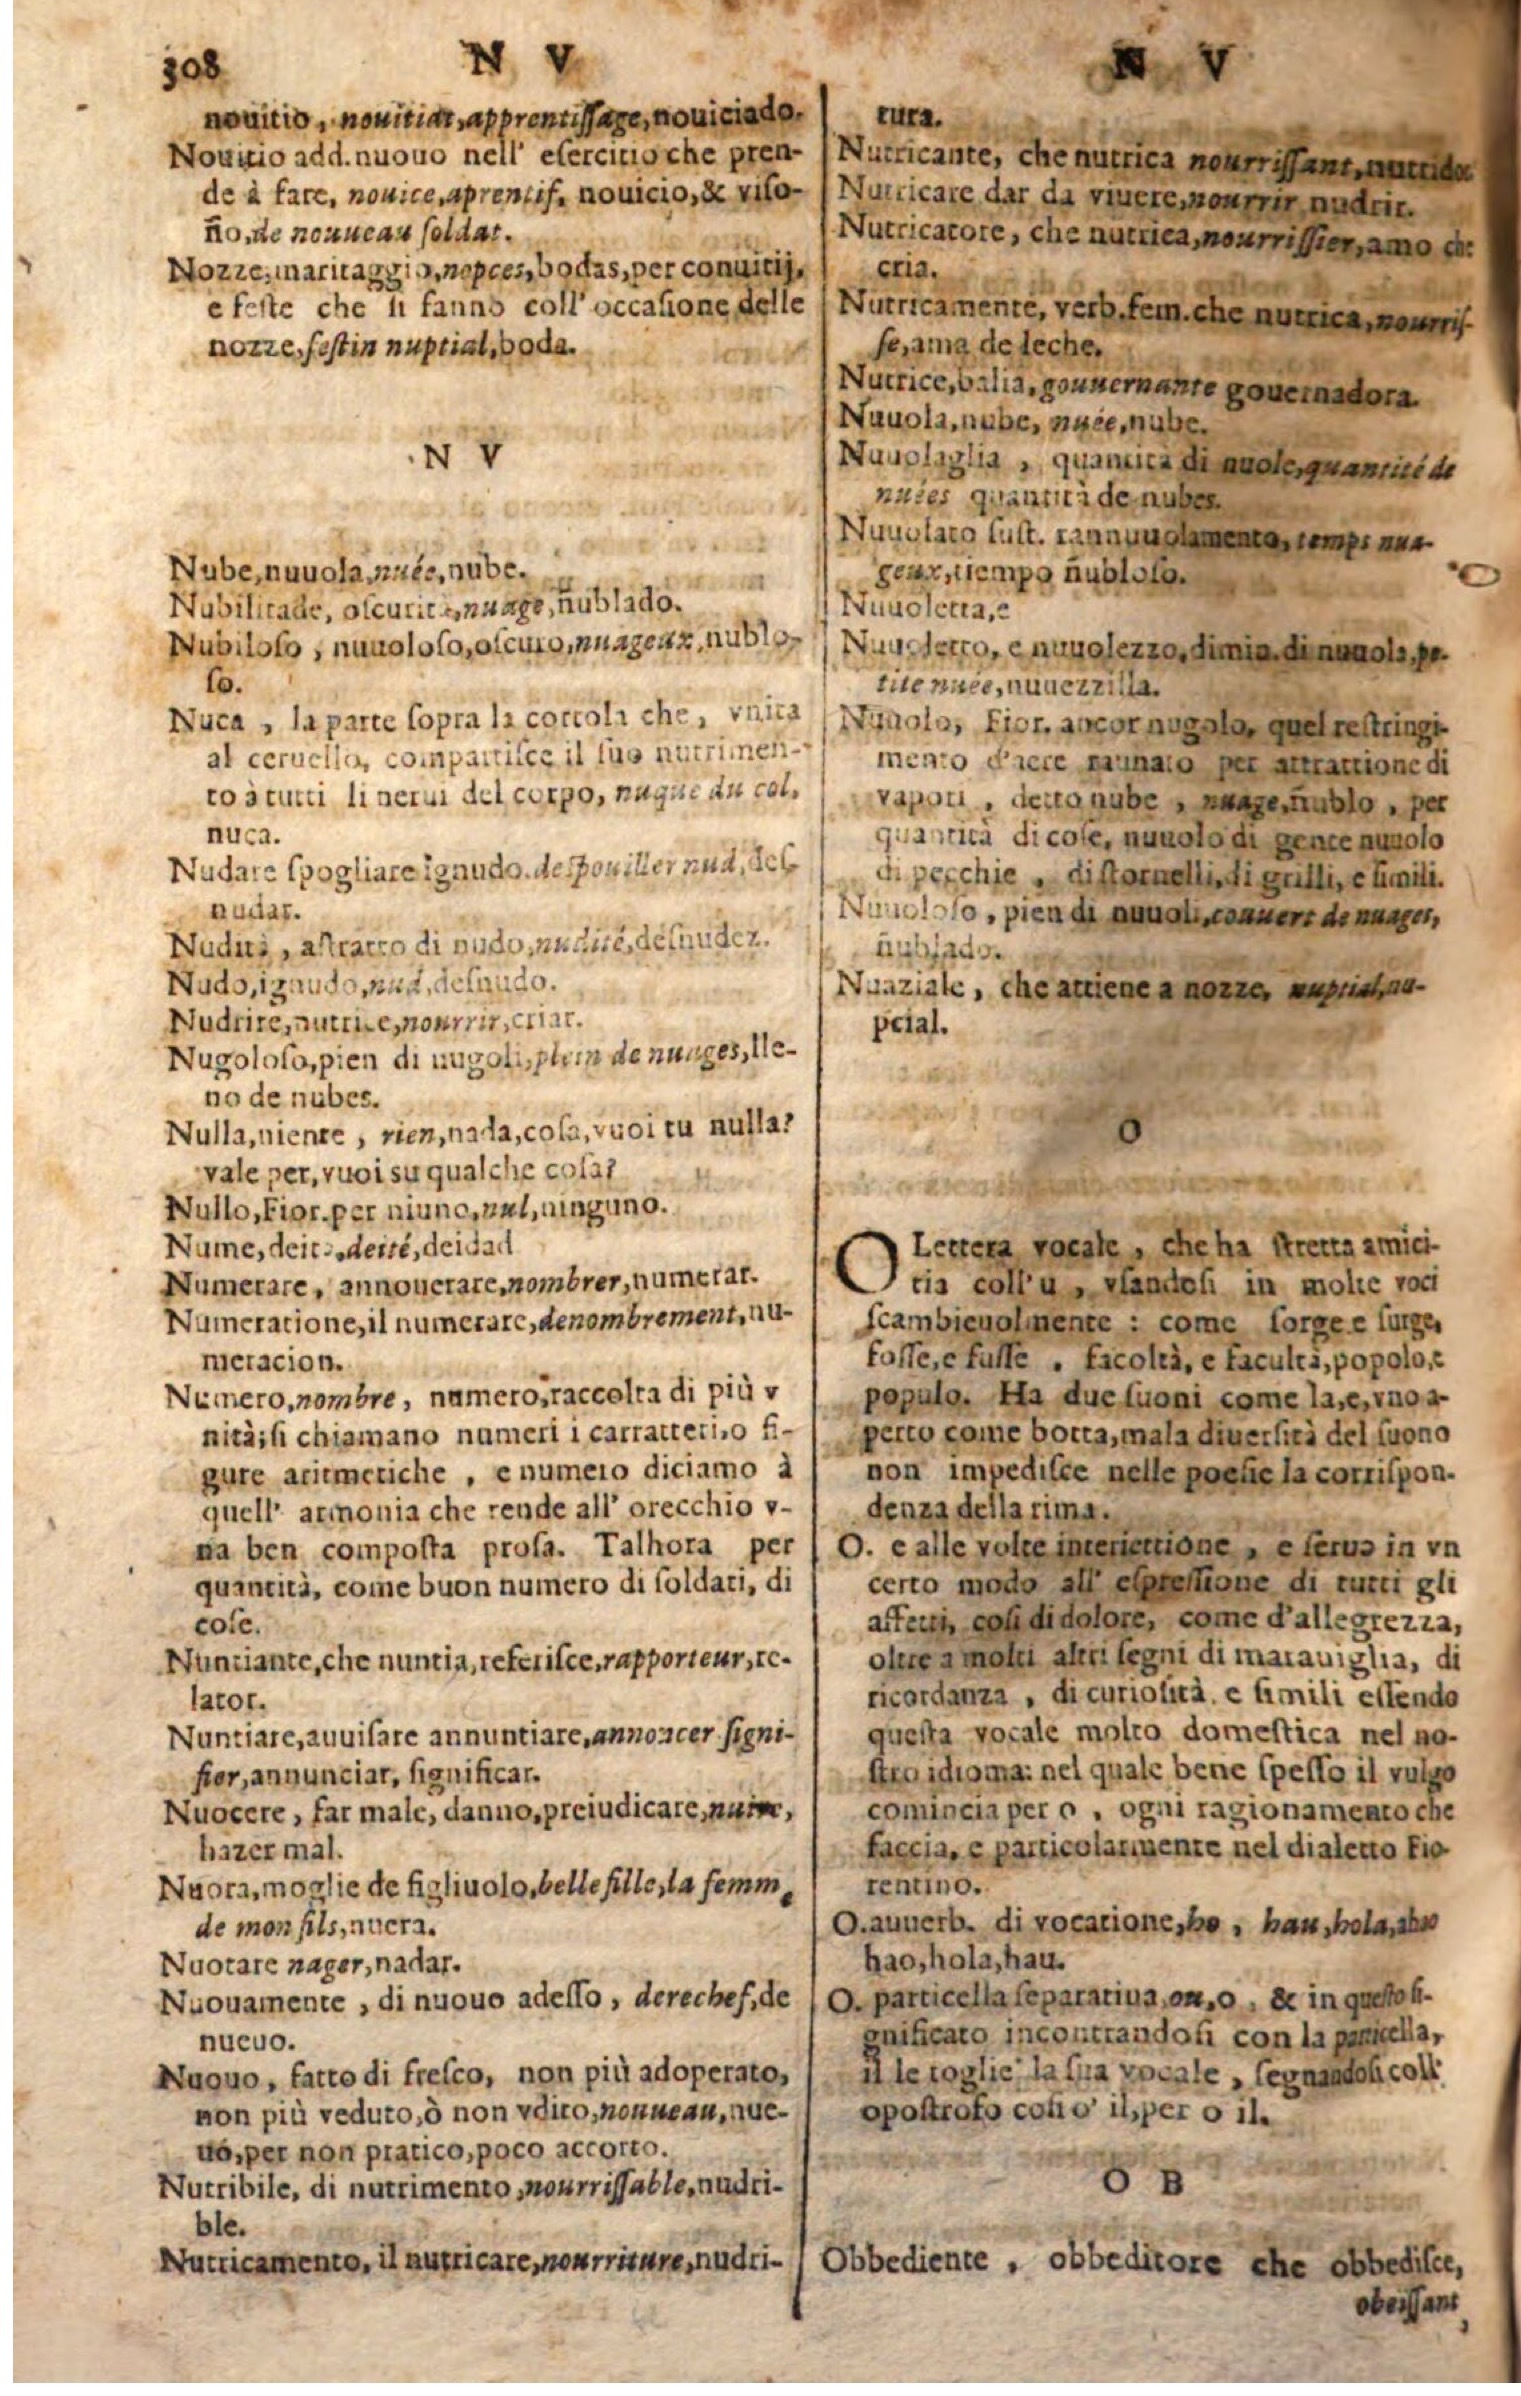 308 N V
nouitio, nouitiat, apprentissage, nouiciado.
Nouitio add. nuouo nell' esercitio che pren-
de à fare, nouice, aprentif, nouicio, & viso-
ño, de nouueau soldat.
Nozze, maritaggio, nopces, bodas, per conuitij,
e feste che si fanno coll' occasione delle
nozze, festin nuptial, boda.
N V
Nube, nuuola, nuée, nube.
Nubilitade, oscurità, nuage, ñublado.
Nubiloso, nuuoloso, oscuro, nuageux, nublo-
so.
Nuca, la parte sopra la cottola che, vnita
al ceruello, compartisce il suo nutrimen-
to à tutti li nerui del corpo, nuque du col,
nuca.
Nudare spogliare ignudo. despouiller nud, des-
nudar.
Nudità, astratto di nudo, nudité, desnudez.
Nudo, ignudo, nud, desnudo.
Nudrire, nutrire, nourrir, criar.
Nugoloso, pien di nugoli, plein de nuages, lle-
no de nubes.
Nulla, niente, rien, nada, cosa, vuoi tu nulla?
vale per, vuoi su qualche cosa?
Nullo, Fior. per niuno, nul, ninguno.
Nume, deità, deité, deidad
Numerare, annouerare, nombrer, numerar.
Numeratione, il numerare, denombrement, nu-
meracion.
Numero, nombre, numero, raccolta di più v
nità; si chiamano numeri i carratteri, o fi-
gure aritmetiche, e numero diciamo à
quell' armonia che rende all' orecchio v-
na ben composta prosa. Talhora per
quantità, come buon numero di soldati, di
cose.
Nuntiante, che nuntia, referisce, rapporteur, re-
lator.
Nuntiare, auuisare annuntiare, annoncer signi-
fier, annunciar, significar.
Nuocere, far male, danno, preiudicare, nuire,
hazer mal.
Nuora, moglie de figliuolo, belle fille, la femme
de mon fils, nuera.
Nuotare nager, nadar.
Nuouamente, di nuouo adesso, derechef, de
nueuo.
Nuouo, fatto di fresco, non più adoperato,
non più veduto, ò non vdito, nouueau, nue-
uo, per non pratico, poco accorto.
Nutribile, di nutrimento, nourrissable, nudri-
ble.
Nutricamento, il nutricare, nourriture, nudri-
N V
tura.
Nutricante, che nutrica nourrissant, nutridor
Nutricare dar da viuere, nourrir nudrir.
Nutricatore, che nutrica, nourrissier, amo che
cria.
Nutricamente, verb. fem. che nutrica, nourris-
se, ama de leche.
Nutrice, balia, gouuernante gouernadora.
Nuuola, nube, nuée, nube.
Nuuolaglia, quantità di nuole, quantité de
nuées quantità de nubes.
Nuuolato sust. rannuuolamento, temps nua-
geux, tiempo ñubloso.
Nuuoletta, e
Nuuoletto, e nuuolezzo, dimin. di nuuola, pe-
tite nuée, nuuezzilla.
Nuuolo, Fior. ancor nugolo, quel restringi-
mento d'aere raunato per attrattione di
vapori, detto nube, nuage, ñublo, per
quantità di cose, nuuolo di gente nuuolo
di pecchie, di stornelli, di grilli, e simili.
Nuuoloso, pien di nuuoli, couuert de nuages,
ñublado.
Nuaziale, che attiene a nozze, nuptial, nu-
pcial.
O
O Lettera vocale, che ha stretta amici-
tia coll'u, vsandosi in molte voci
scambieuolmente: come sorge e surge,
fosse, e fusse, facoltà, e facultà, popolo, e
populo. Ha due suoni come la, e, vno a-
perto come botta, ma la diuersità del suono
non impedisce nelle poesie la corrispon-
denza della rima.
O. e alle volte interiettione, e serue in vn
certo modo all' espressione di tutti gli
affetti, cosi di dolore, come d'allegrezza,
oltre a molti altri segni di marauiglia, di
ricordanza, di curiosità. e simili essendo
questa vocale molto domestica nel no-
stro idioma: nel quale bene spesso il vulgo
comincia per o, ogni ragionamento che
faccia, e particolarmente nel dialetto Fio-
rentino.
O. auuerb. di vocatione, ho, hau, hola,
hao, hola, hau.
O. particella separatiua, ou, o, & in questo si-
gnificato incontrandosi con la particella,
il le toglie la sua vocale, segnandosi coll'
opostrofo cosi o' il, per o il.
O B
Obbediente, obbeditore che obbedisce,
obeissant,